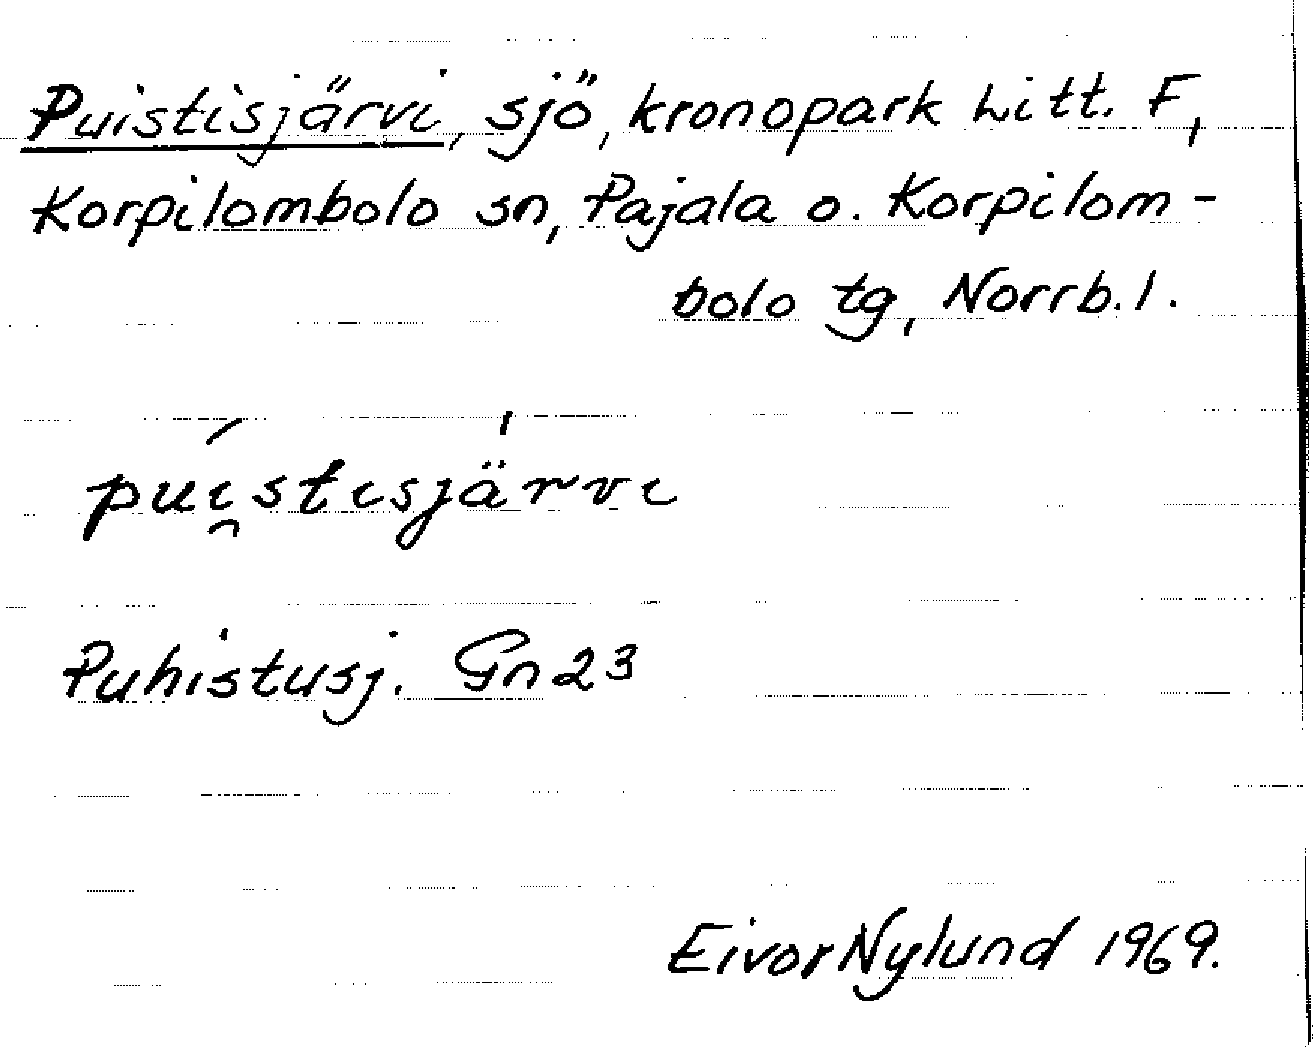 Puistisjärvi, sjö, kronopark Litt. F,
Korpilombolo sn, Pajala o. Korpilom-
bolo tg, Norrb. l.
púi̯stisjärvi
Puhistusj. Gn 23
Eivor Nylund 1969.